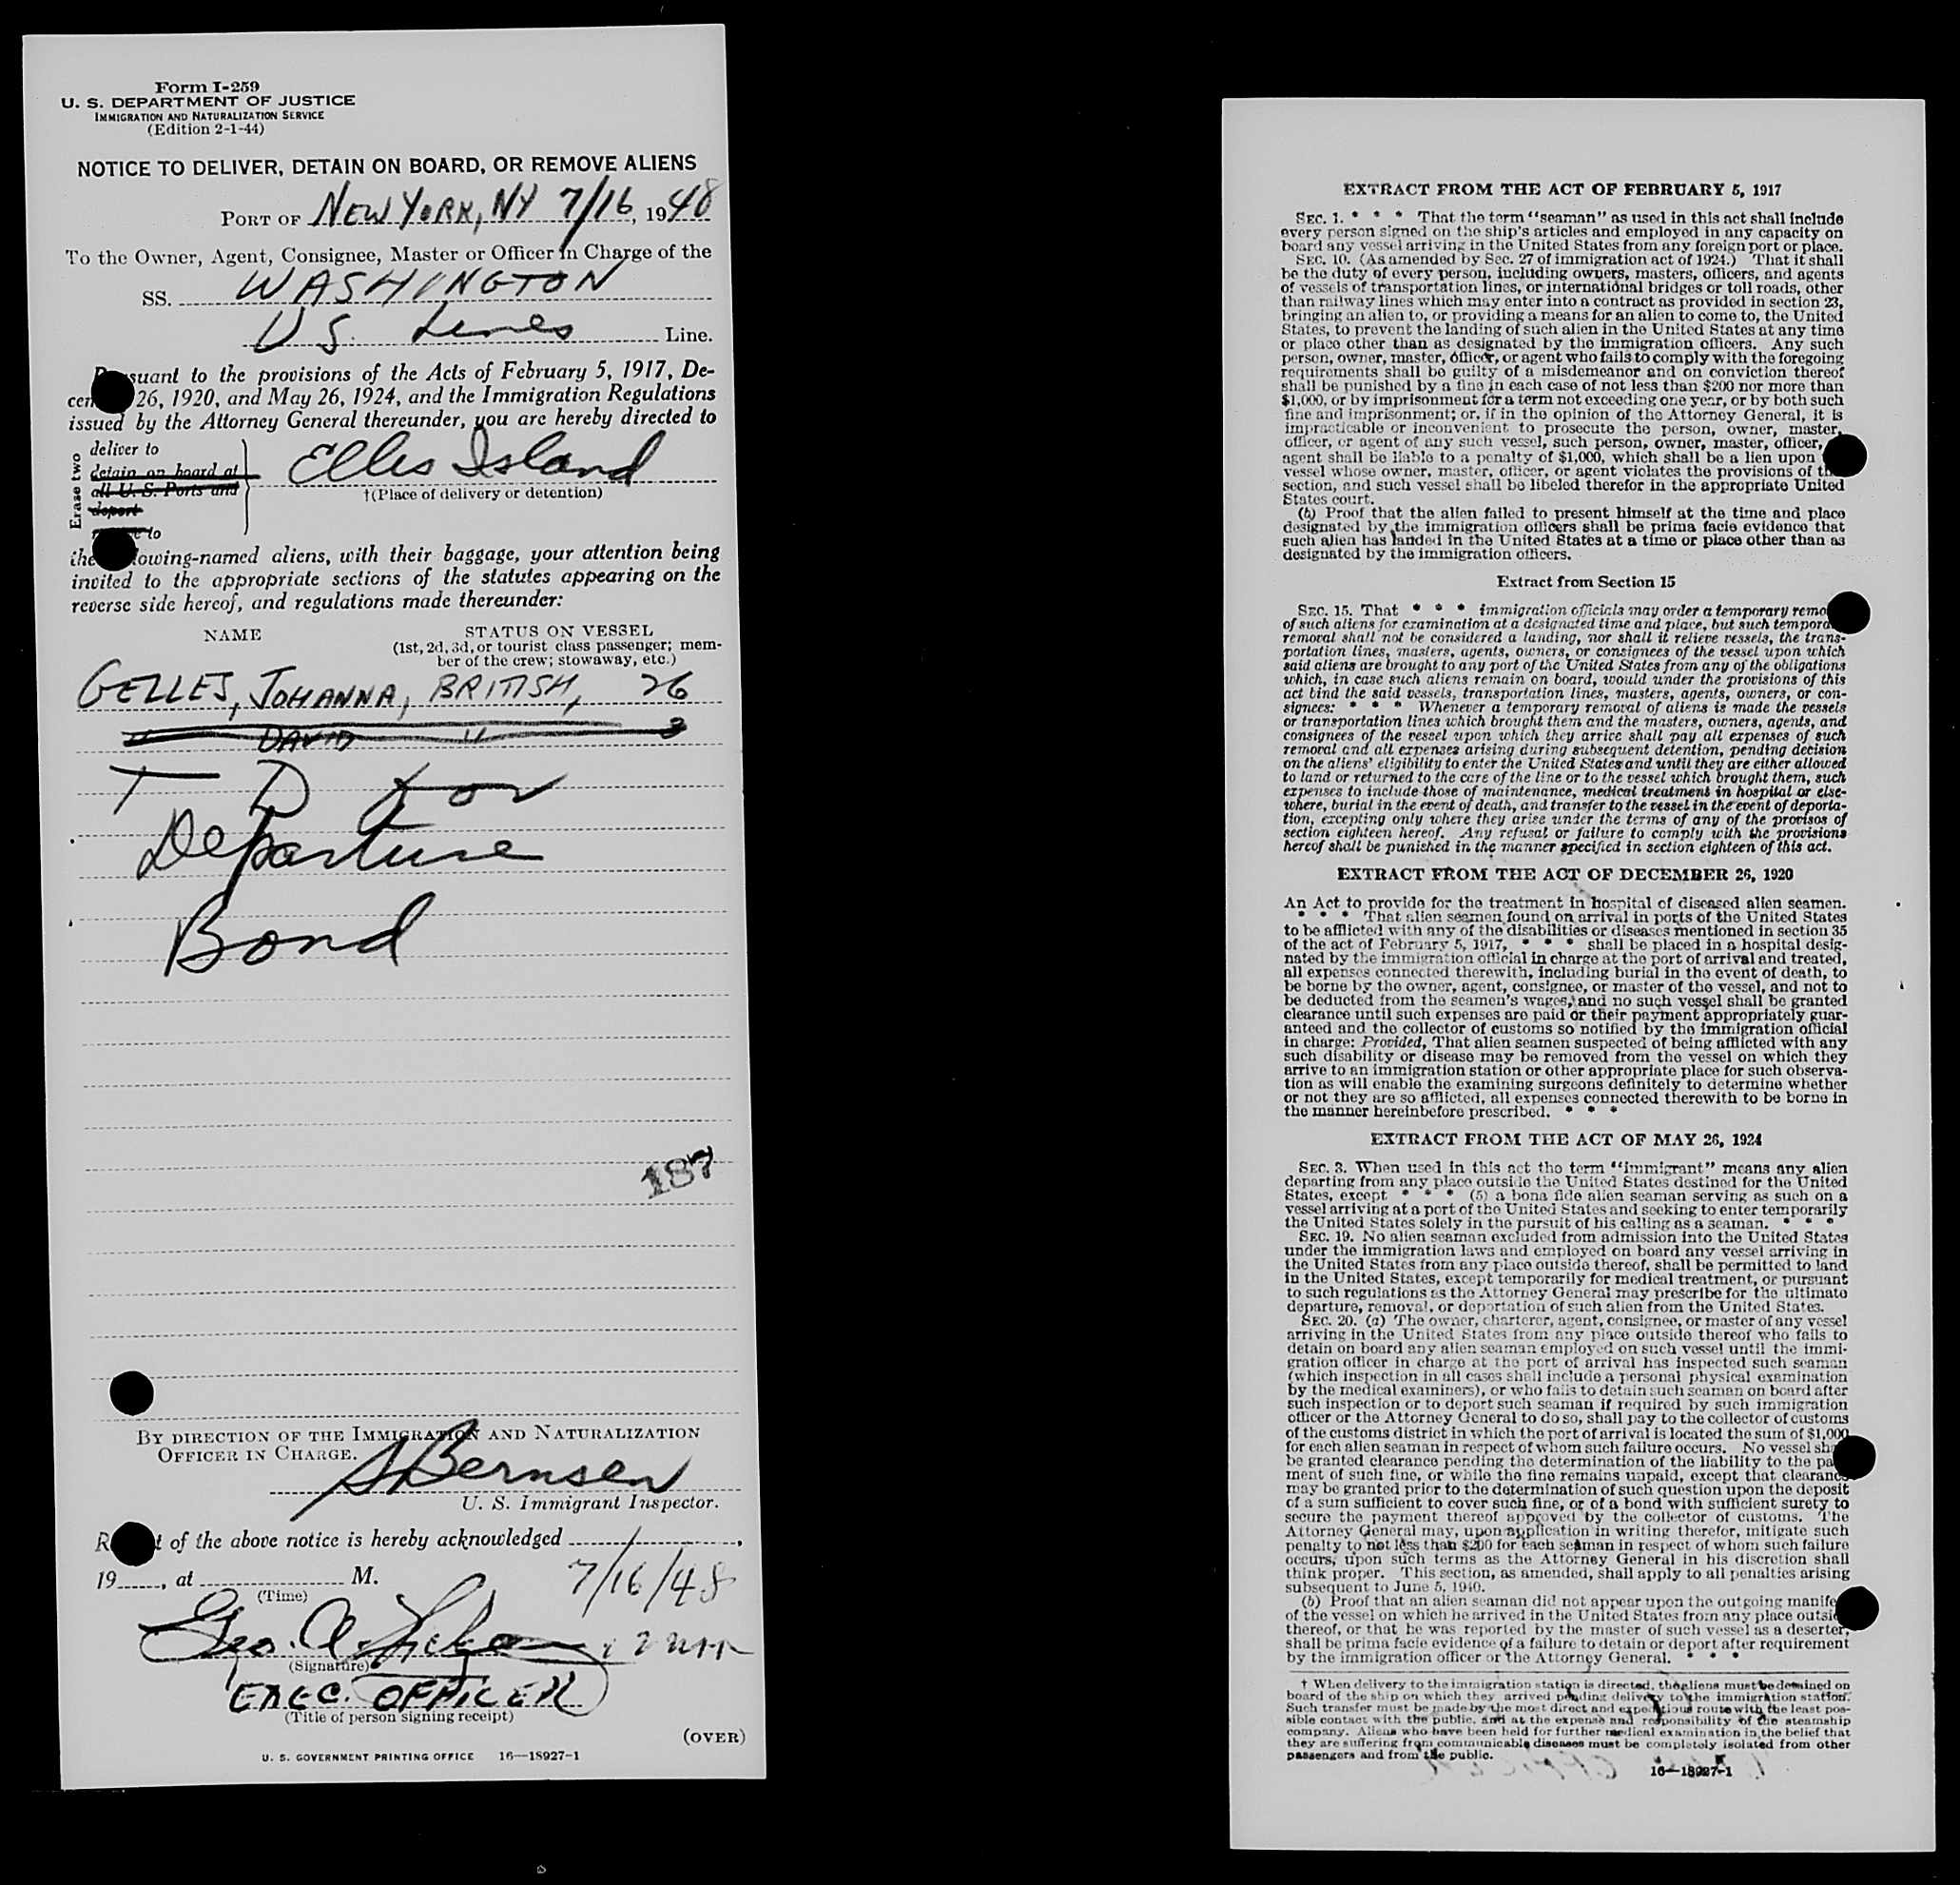 Form I-259
U. S. DEPARTMENT OF JUSTICE
IMMIGRATION AND NATURALIZATION SERVICE
(Edition 2-1-44)
NOTICE TO DELIVER, DETAIN ON BOARD, OR REMOVE ALIENS
PORT OF NEW YORK, NY 7/16, 1948
To the Owner, Agent, Consignee, Master or Officer in Charge of the
SS. WASHINGTON
US. Lines Line.
suant to the provisions of the Acts of February 5, 1917, De-
cem 26, 1920, and May 26, 1924, and the Immigration Regulations
issued by the Attorney General thereunder, you are hereby directed to
Erase two
deliver to
detain on board at
all U. S. Ports and
deport
to
Ellis Island
†(Place of delivery or detention)
the lowing-named aliens, with their baggage, your attention being
invited to the appropriate sections of the statutes appearing on the
reverse side hereof, and regulations made thereunder:
NAME STATUS ON VESSEL
(1st, 2d, 3d, or tourist class passenger; mem-
ber of the crew; stowaway, etc.)
GELLES, JOHANNA, BRITISH, 26
" DAVID " 3
T D for
Departure
Bond
187
BY DIRECTION OF THE IMMIGRATION AND NATURALIZATION
OFFICER IN CHARGE.
S Bernsen
U. S. Immigrant Inspector.
R t of the above notice is hereby acknowledged ,
19 , at M. 7/16/48
(Time)
Geo. A.
(Signature)
EXEC. OFFICER
(Title of person signing receipt)
(OVER)
U. S. GOVERNMENT PRINTING OFFICE 16—18927-1
EXTRACT FROM THE ACT OF FEBRUARY 5, 1917
SEC. 1. * * * That the term "seaman" as used in this act shall include
every person signed on the ship's articles and employed in any capacity on
board any vessel arriving in the United States from any foreign port or place.
SEC. 10. (As amended by Sec. 27 of immigration act of 1924.) That it shall
be the duty of every person, including owners, masters, officers, and agents
of vessels of transportation lines, or international bridges or toll roads, other
than railway lines which may enter into a contract as provided in section 23,
bringing an alien to, or providing a means for an alien to come to, the United
States, to prevent the landing of such alien in the United States at any time
or place other than as designated by the immigration officers. Any such
person, owner, master, officer, or agent who fails to comply with the foregoing
requirements shall be guilty of a misdemeanor and on conviction thereof
shall be punished by a fine in each case of not less than $200 nor more than
$1,000, or by imprisonment for a term not exceeding one year, or by both such
fine and imprisonment; or, if in the opinion of the Attorney General, it is
impracticable or inconvenient to prosecute the person, owner, master,
officer, or agent of any such vessel, such person, owner, master, officer,
agent shall be liable to a penalty of $1,000, which shall be a lien upon
vessel whose owner, master, officer, or agent violates the provisions of th
section, and such vessel shall be libeled therefor in the appropriate United
States court.
(b) Proof that the alien failed to present himself at the time and place
designated by the immigration officers shall be prima facie evidence that
such alien has landed in the United States at a time or place other than as
designated by the immigration officers.
Extract from Section 15
SEC. 15. That * * * immigration officials may order a temporary remo
of such aliens for examination at a designated time and place, but such tempora
removal shall not be considered a landing, nor shall it relieve vessels, the trans-
portation lines, masters, agents, owners, or consignees of the vessel upon which
said aliens are brought to any port of the United States from any of the obligations
which, in case such aliens remain on board, would under the provisions of this
act bind the said vessels, transportation lines, masters, agents, owners, or con-
signees: * * * Whenever a temporary removal of aliens is made the vessels
or transportation lines which brought them and the masters, owners, agents, and
consignees of the vessel upon which they arrive shall pay all expenses of such
removal and all expenses arising during subsequent detention, pending decision
on the aliens' eligibility to enter the United States and until they are either allowed
to land or returned to the care of the line or to the vessel which brought them, such
expenses to include those of maintenance, medical treatment in hospital or else-
where, burial in the event of death, and transfer to the vessel in the event of deporta-
tion, excepting only where they arise under the terms of any of the provisos of
section eighteen hereof. Any refusal or failure to comply with the provisions
hereof shall be punished in the manner specified in section eighteen of this act.
EXTRACT FROM THE ACT OF DECEMBER 26, 1920
An Act to provide for the treatment in hospital of diseased alien seamen.
* * * That alien seamen found on arrival in ports of the United States
to be afflicted with any of the disabilities or diseases mentioned in section 35
of the act of February 5, 1917, * * * shall be placed in a hospital desig-
nated by the immigration official in charge at the port of arrival and treated,
all expenses connected therewith, including burial in the event of death, to
be borne by the owner, agent, consignee, or master of the vessel, and not to
be deducted from the seamen's wages, and no such vessel shall be granted
clearance until such expenses are paid or their payment appropriately guar-
anteed and the collector of customs so notified by the immigration official
in charge: Provided, That alien seamen suspected of being afflicted with any
such disability or disease may be removed from the vessel on which they
arrive to an immigration station or other appropriate place for such observa-
tion as will enable the examining surgeons definitely to determine whether
or not they are so afflicted, all expenses connected therewith to be borne in
the manner hereinbefore prescribed. * * *
EXTRACT FROM THE ACT OF MAY 26, 1924
SEC. 3. When used in this act the term "immigrant" means any alien
departing from any place outside the United States destined for the United
States, except * * * (5) a bona fide alien seaman serving as such on a
vessel arriving at a port of the United States and seeking to enter temporarily
the United States solely in the pursuit of his calling as a seaman. * * *
SEC. 19. No alien seaman excluded from admission into the United States
under the immigration laws and employed on board any vessel arriving in
the United States from any place outside thereof, shall be permitted to land
in the United States, except temporarily for medical treatment, or pursuant
to such regulations as the Attorney General may prescribe for the ultimate
departure, removal, or deportation of such alien from the United States.
SEC. 20. (a) The owner, charterer, agent, consignee, or master of any vessel
arriving in the United States from any place outside thereof who fails to
detain on board any alien seaman employed on such vessel until the immi-
gration officer in charge at the port of arrival has inspected such seaman
(which inspection in all cases shall include a personal physical examination
by the medical examiners), or who fails to detain such seaman on board after
such inspection or to deport such seaman if required by such immigration
officer or the Attorney General to do so, shall pay to the collector of customs
of the customs district in which the port of arrival is located the sum of $1,000
for each alien seaman in respect of whom such failure occurs. No vessel sha
be granted clearance pending the determination of the liability to the pa
ment of such fine, or while the fine remains unpaid, except that clearance
may be granted prior to the determination of such question upon the deposit
of a sum sufficient to cover such fine, or of a bond with sufficient surety to
secure the payment thereof approved by the collector of customs. The
Attorney General may, upon application in writing therefor, mitigate such
penalty to not less than $200 for each seaman in respect of whom such failure
occurs, upon such terms as the Attorney General in his discretion shall
think proper. This section, as amended, shall apply to all penalties arising
subsequent to June 5, 1940.
(b) Proof that an alien seaman did not appear upon the outgoing manife
of the vessel on which he arrived in the United States from any place outsid
thereof, or that he was reported by the master of such vessel as a deserter,
shall be prima facie evidence of a failure to detain or deport after requirement
by the immigration officer or the Attorney General. * * *
† When delivery to the immigration station is directed, the aliens must be detained on
board of the ship on which they arrived pending delivery to the immigration station.
Such transfer must be made by the most direct and expeditious route with the least pos-
sible contact with the public, and at the expense and responsibility of the steamship
company. Aliens who have been held for further medical examination in the belief that
they are suffering from communicable diseases must be completely isolated from other
passengers and from the public.
16—18927-1